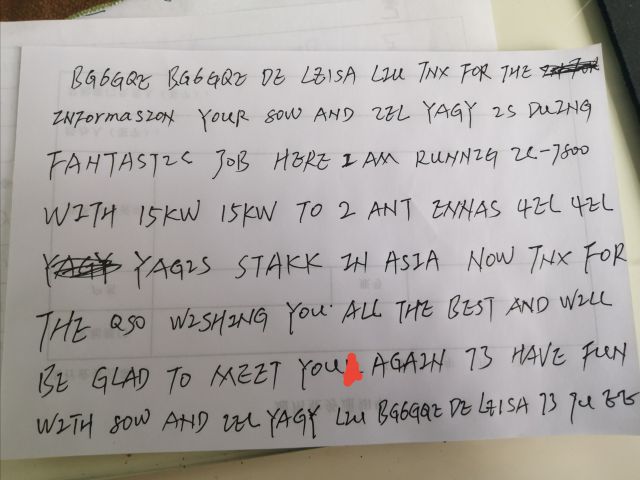 BG6GQZ BG6GQZ DE LZ1SA LIU TNX FOR THE
INFORMASION YOUR 80W AND 2EL YAGY IS DUING
FANTASTIC JOB HERE I AM RUNNIG IC-7800
WITH 15KW 15KW TO 2 ANT ENNAS 4EL 4EL
YAGIS STAKK IN ASIA NOW TNX FOR
THE QSO WISHING YOU ALL THE BEST AND WILL
BE GLAD TO MEET YOU AGAIN 73 HAVE FUN
WITH 80W AND 2EL YAGY LIU BG6GQZ DE LZ1SA 73 TU EE